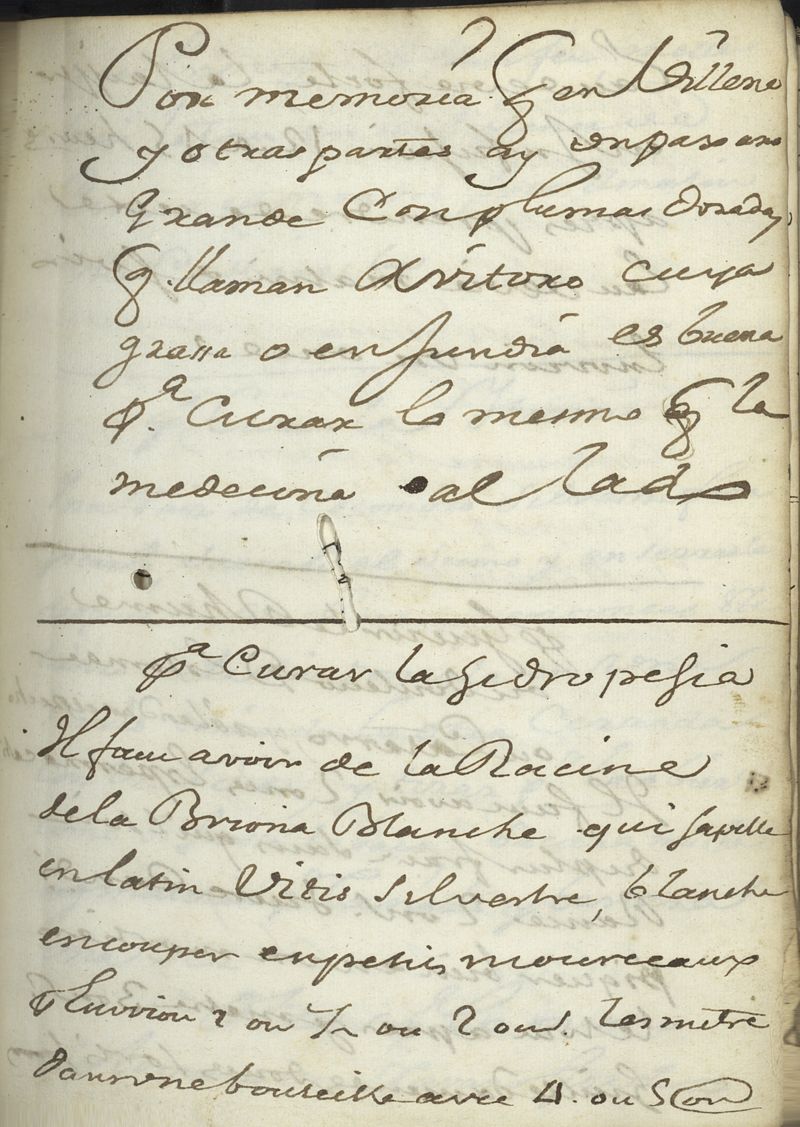 Por memoria q en Villena
y otras partes ay un paxaro
Grande Con plumas Doradas
q. llaman Avitoro cuya
grassa o enjundia es buena
pª. Curar lo mesmo q la
medecina al lado
pª Curar la hidropesia
Il faut avoir de la Racine
de la Briona Blanche qui sapelle
en latin Vitis silvestre, blanche
en couper en petis mourceaux
ou ½ ou 2 les metre
dans une bouteille avec 4. ou 5 on